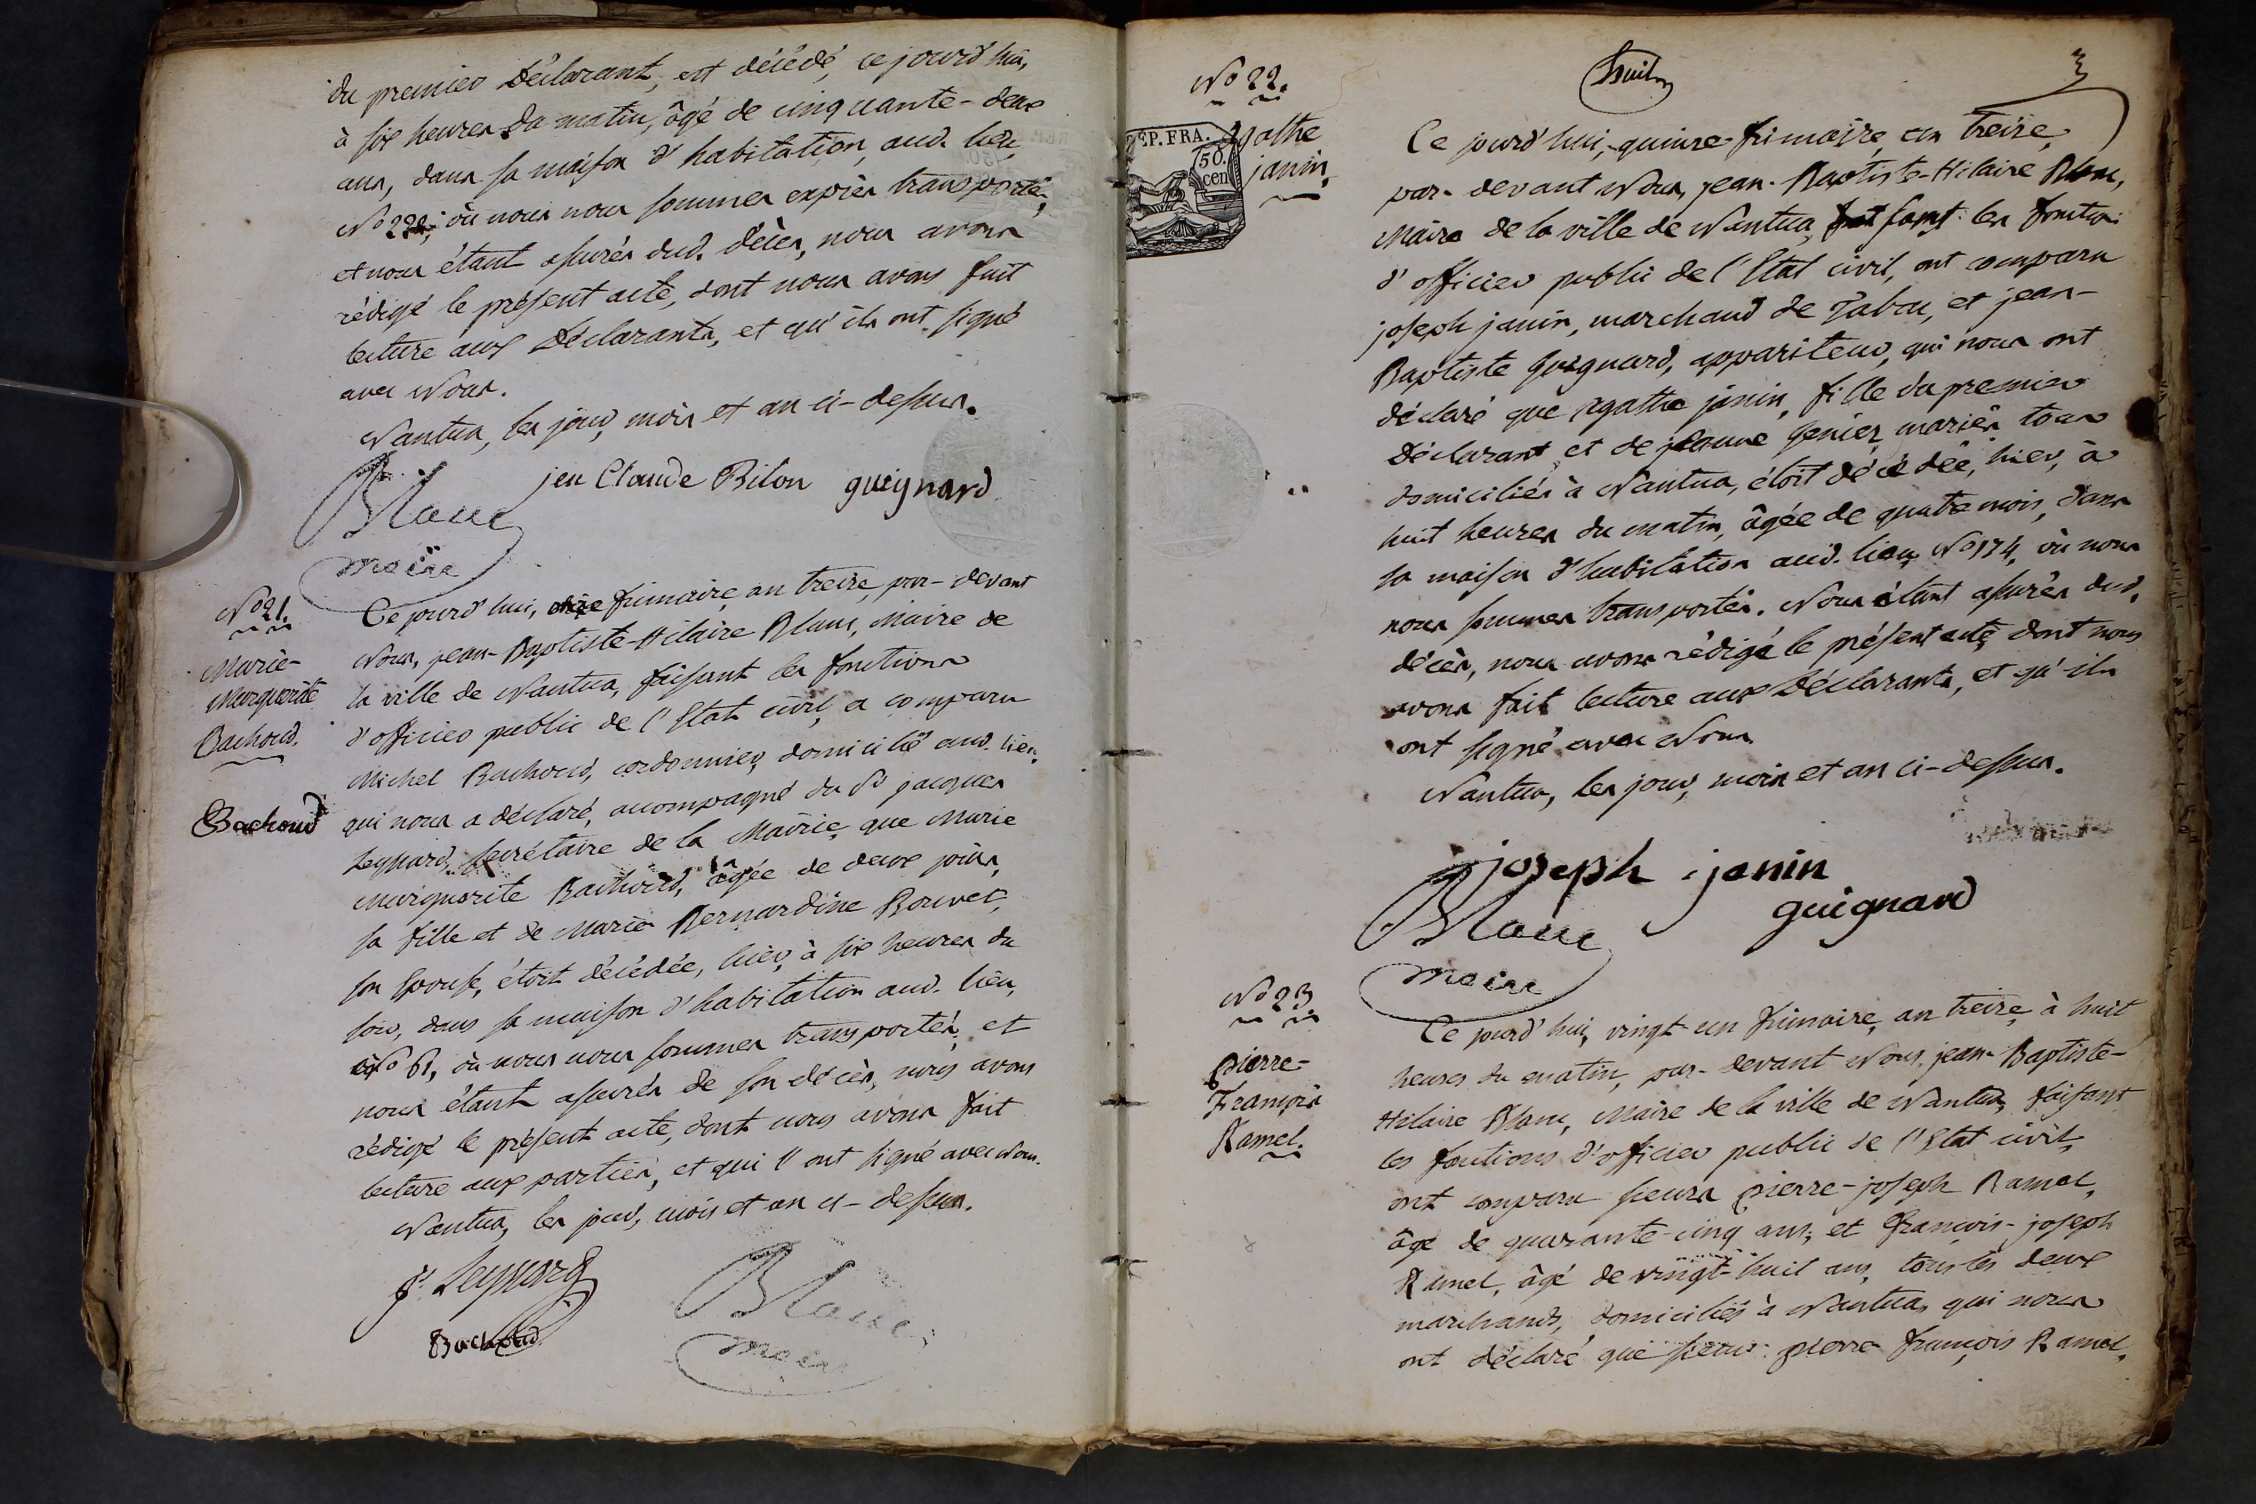 du premier Déclarant, est décédé, ce jourd'hui,
à six heures du matin, âgé de cinquante-deux
ans, dans sa maison d'habitation, aud. lieu,
où nous nous sommes exprès transportés,
et nous étant assurés dud. décès, nous avons
rédigé le présent acte, dont nous avons fait
lecture aux Déclarants, et qu'ils ont signé
avec Nous.
Nantua, les jour, mois et an ci-dessus.
jen Claude Bilon guignard
Blanc
maire
No 21.
Marie-
Marguerite
Bachoud.
Bachoud
Ce jourd'hui, frimaire, an treize, par-devant
Nous, jean-Baptiste-Hilaire Blanc, Maire de
la ville de Nantua, faisant les fonctions
d'officier public de l'Etat civil, a comparu
Michel Bachoud, cordonnier, domicilié aud. lieu,
qui nous a déclaré, accompagné du Sr jacques
Leynard, secrétaire de la Mairie, que Marie
Marguerite Bachoud, âgée de deux jours,
sa fille et de Marie Bernardine Bouvet,
son Epouse, étoit décédée, hier, à six heures du
soir, dans sa maison d'habitation aud. lieu,
où nous nous sommes transportés, et
nous étant assurés de son décès, nous avons
rédigé le présent acte, dont nous avons fait
lecture aux parties, et qui l'ont signé avec Nous.
Nantua, les jour, mois et an ci-dessus.
Bachoud
Blanc
maire
No 22.
Agathe
janin,
RÉP. FRA.
50.
cen
huit
Ce jourd'hui, quinze frimaire, an treize,
par-devant Nous, jean-Baptiste-Hilaire Blanc,
Maire de la ville de Nantua, les fonctions
d'officier public de l'Etat civil, ont comparu
joseph janin, marchand de Tabac, et jean-
Baptiste guignard, appariteur, qui nous ont
déclaré que Agathe janin, fille du premier
Déclarant, et de jeanne mariés, tous
domiciliés à Nantua, étoit décédée, hier, à
huit heures du matin, âgée de quatre mois, dans
sa maison d'habitation aud. lieu, No 174, où nous
nous sommes transportés. Nous étant assurés dud.
décès, nous avons rédigé le présent acte, dont nous
avons fait lecture aux Déclarants, et qu'ils
ont signé avec Nous
Nantua, les jour, mois et an ci-dessus.
joseph janin
guignard
Blanc
maire
No 23
pierre-
François
Ramel.
Ce jourd'hui, vingt-un frimaire, an treize, à huit
heures du matin, par-devant Nous, jean-Baptiste-
Hilaire Blanc, Maire de la ville de Nantua, faisant
les fonctions d'officier public de l'Etat civil,
ont comparu sieurs pierre-joseph Ramel,
âgé de quarante-cinq ans, et françois-joseph
Ramel, âgé de vingt-huit ans, tous les deux
marchands, domiciliés à Nantua, qui nous
ont déclaré que sieur pierre françois Ramel,